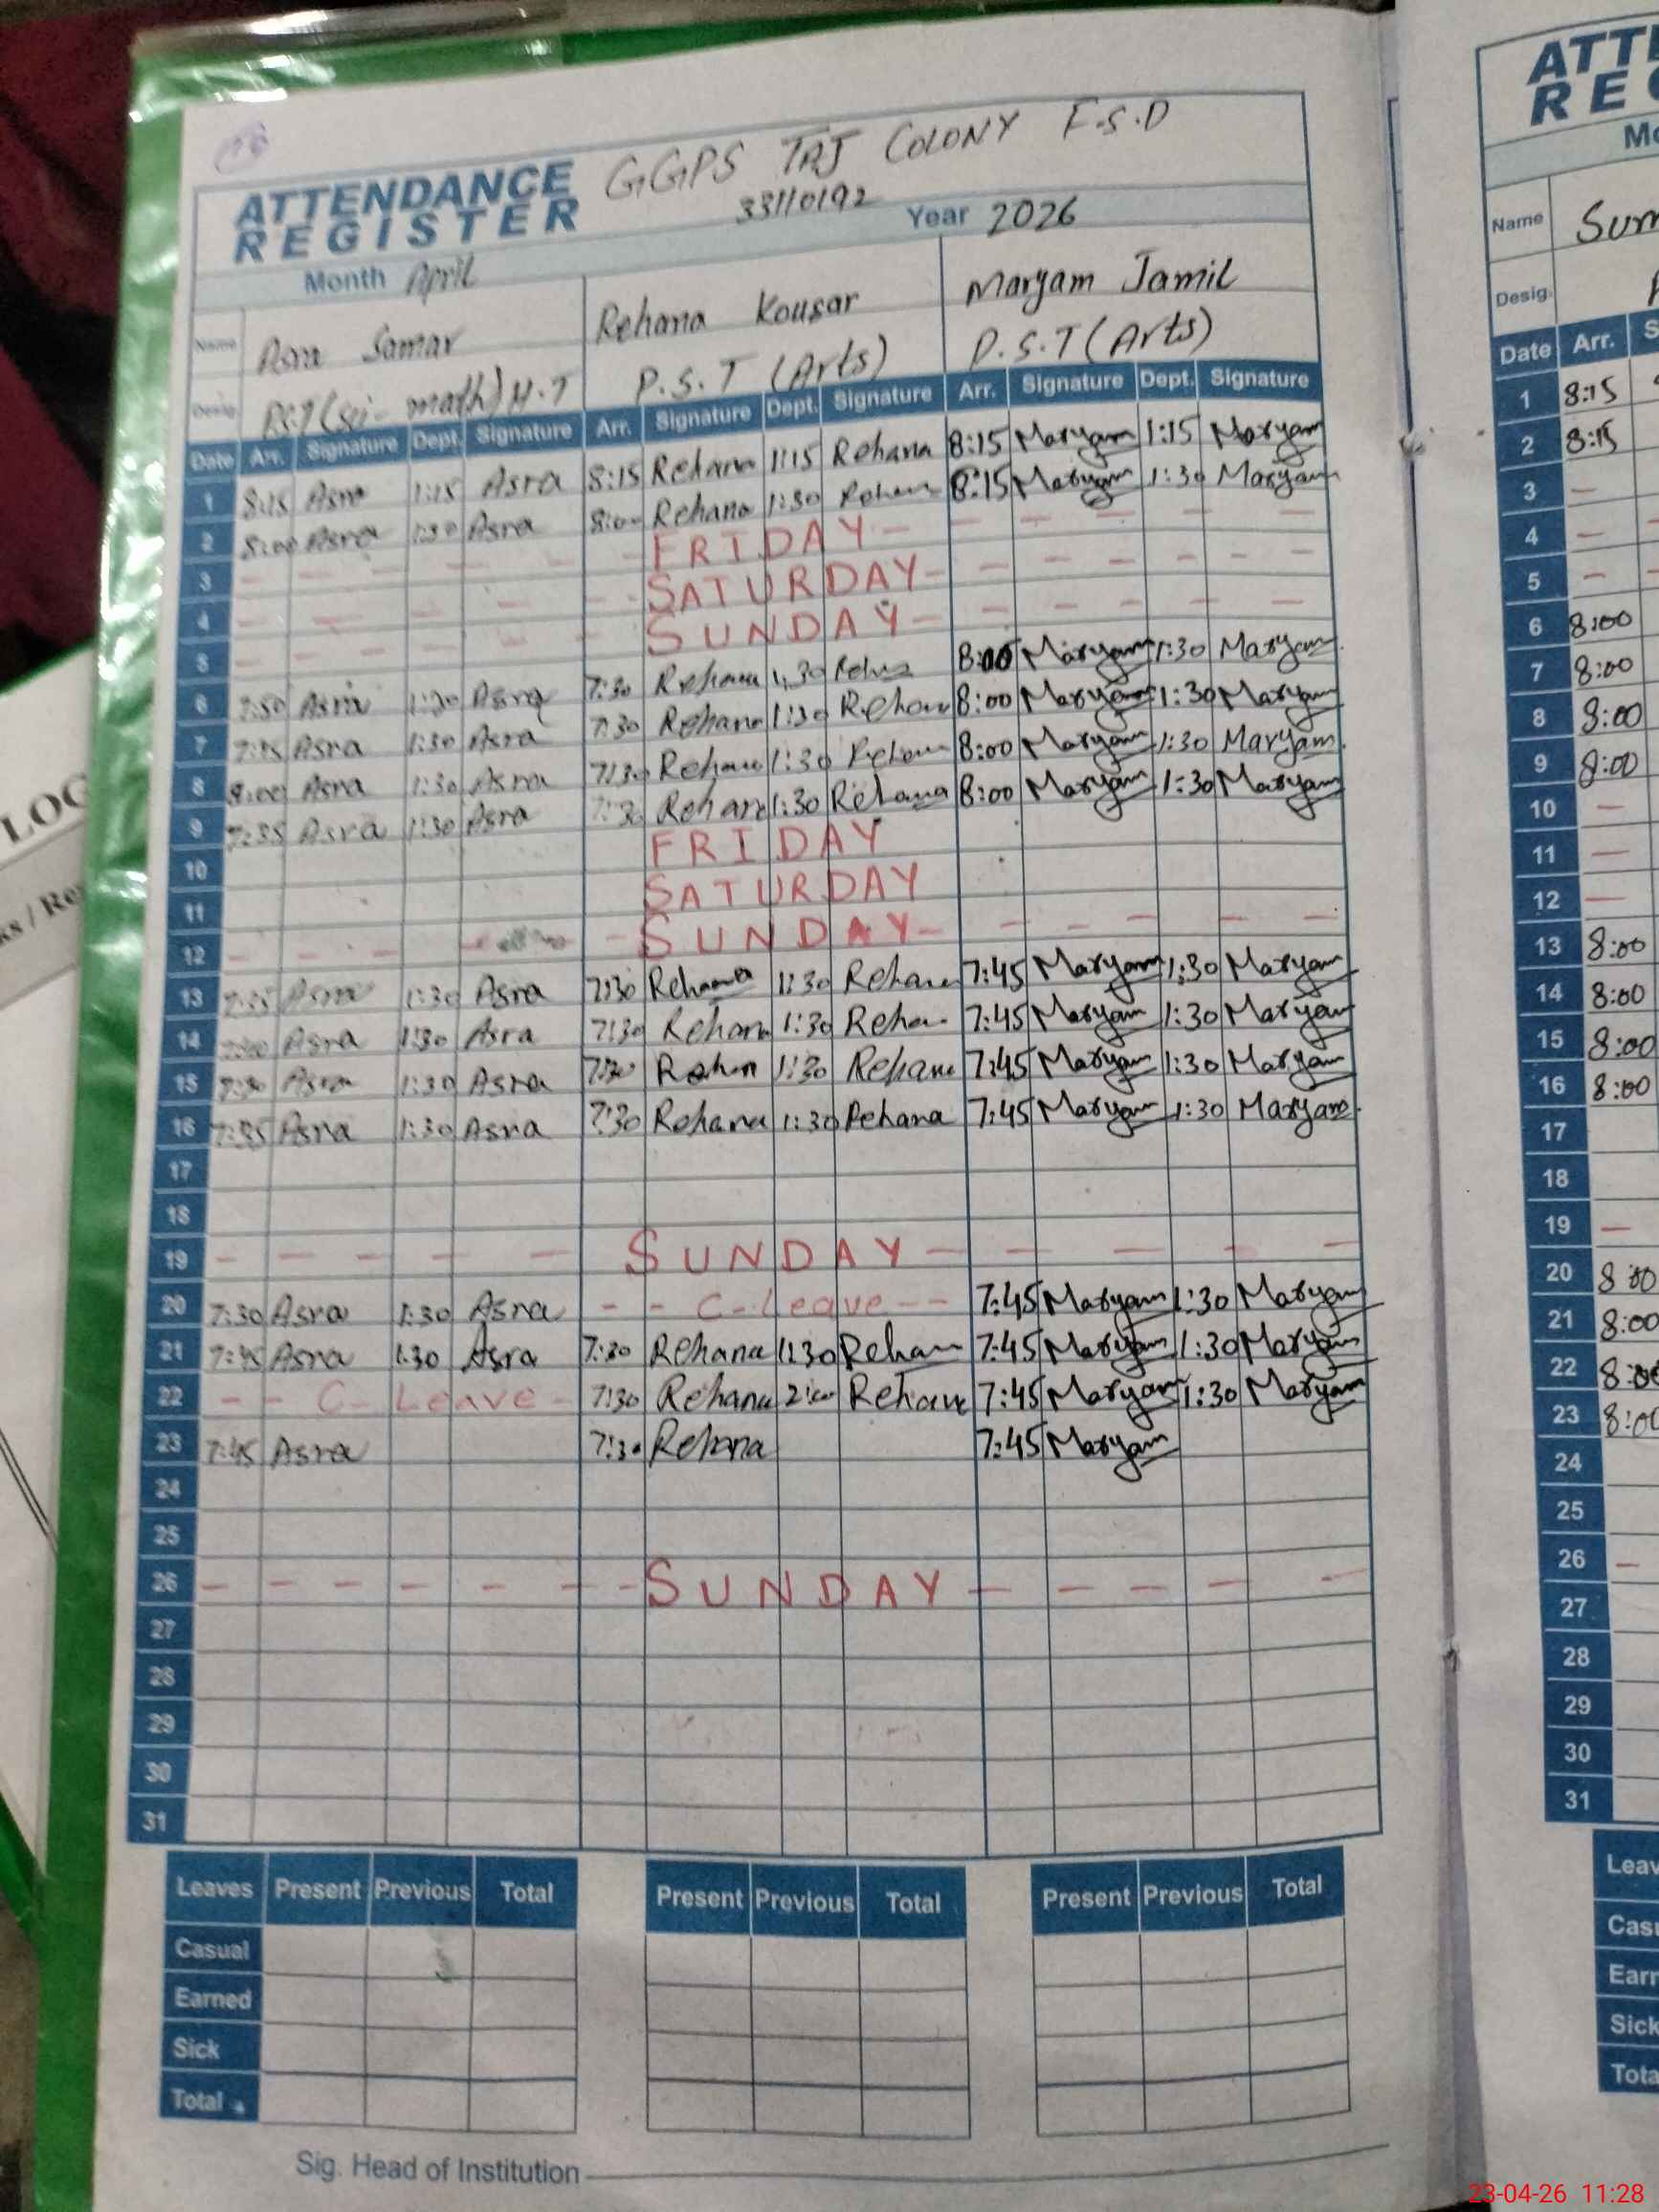 ATTENDANCE REGISTER
GGPS TAJ COLONY F.S.D
33110192
Year 2026
Month April
Name Asra Samar Rehana Kousar Maryam Jamil
Desig. P.S.T (Arts) P.S.T (Arts)
Date Arr. Signature Dept. Signature Arr. Signature Dept. Signature Arr. Signature Dept. Signature
1 8:15 Asra 1:15 Asra 8:15 Rehana 1:15 Rehana 8:15 Maryam 1:15 Maryam
2 8:00 Asra 1:30 Asra 8:00 Rehana 1:30 Rehana 8:15 Maryam 1:30 Maryam
3 FRIDAY
4 SATURDAY
5 SUNDAY
6 7:50 Asra 1:30 Asra 7:30 Rehana 1:30 8:00 Maryam 1:30 Maryam
7 Asra 1:30 Asra 7:30 Rehana 1:30 Rehana 8:00 Maryam 1:30 Maryam
8 8:00 Asra 1:30 Asra 7:30 Rehana 1:30 Rehana 8:00 Maryam 1:30 Maryam
9 7:35 Asra 1:30 Asra 7:30 Rehana 1:30 Rehana 8:00 Maryam 1:30 Maryam
10 FRIDAY
11 SATURDAY
12 SUNDAY
13 Asra 1:30 Asra 7:30 Rehana 1:30 Rehana 7:45 Maryam 1:30 Maryam
14 Asra 1:30 Asra 7:30 Rehana 1:30 Rehana 7:45 Maryam 1:30 Maryam
15 7:30 Asra 1:30 Asra 7:30 Rehana 1:30 Rehana 7:45 Maryam 1:30 Maryam
16 7:35 Asra 1:30 Asra 7:30 Rehana 1:30 Rehana 7:45 Maryam 1:30 Maryam
17
18
19 SUNDAY
20 7:30 Asra 1:30 Asra C-Leave 7:45 Maryam 1:30 Maryam
21 7:45 Asra 1:30 Asra 7:30 Rehana 1:30 Rehana 7:45 Maryam 1:30 Maryam
22 C-Leave 7:30 Rehana 2:00 Rehana 7:45 Maryam 1:30 Maryam
23 7:45 Asra 7:30 Rehana 7:45 Maryam
24
25
26 SUNDAY
27
28
29
30
31
Leaves Present Previous Total Present Previous Total Present Previous Total
Casual
Earned
Sick
Total
Sig. Head of Institution
LOG
Name
Desig.
Date Arr.
1 8:15
2 8:15
3
4
5
6 8:00
7 8:00
8 8:00
9 8:00
10
11
12
13 8:00
14 8:00
15 8:00
16 8:00
17
18
19
20 8:00
21 8:00
22 8:00
23 8:00
24
25
26
27
28
29
30
31
Sick
23-04-26 11:28